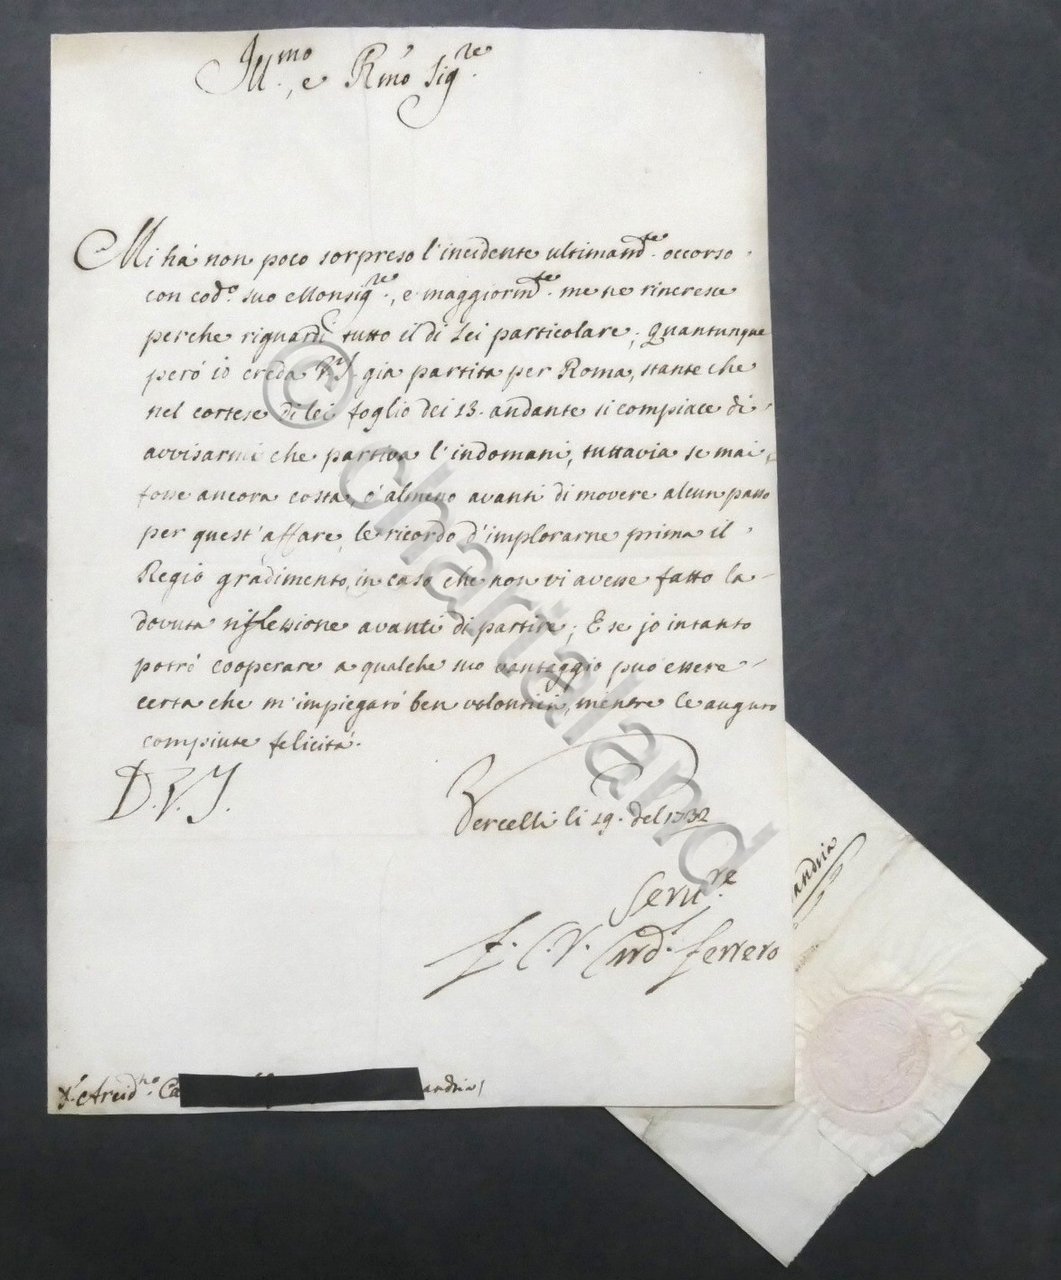 Ill.mo, e Rmo Sig.re
Mi há non poco sorpreso l'incidente ultimand.te occorso
con cod.o suo Monsig.re, e maggiorm.te me ne rincresce
perche riguardi tutto il di Lei particolare; Quantunque
peró io creda V.S. gia partita per Roma, stante che
nel cortese di lei foglio dei 13. andante si compiace di
avvisarmi che partiva l'indomani, tuttavia se mai
fosse ancora costá, ó almeno avanti di movere alcun passo
per quest'affare, le ricordo d'implorarne prima il
Regio gradimento, in caso che non vi avesse fatto la
dovuta riflessione avanti di partire; E se jo intanto
potró cooperare a qualche suo vantaggio può essere
certa che m'impiegaró ben volontieri, mentre le auguro
compiute felicitá.
D.V.S.
Vercelli li 19. del 1732
Seru.re
f. C. V. Card. Ferrero
Arcid.no Ca
andria
andria
© chartaland